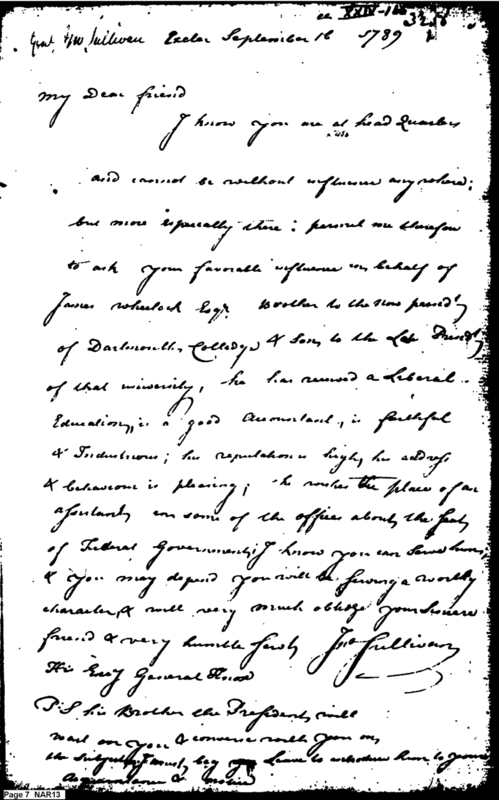 XXIV-166
3256
Genl Jno Sullivan Exeter September 16 1789
My Dear friend
I know you are at head Quarters
and cannot be without influence any where;
but more Especially there; permit me therefore
to ask your favorable influence in behalf of
James Wheelock Esqr Brother to the now presedt
of Dartmouth Colledge & Son to the Late Presedt
of that university, he has received a Liberal
Education, is a good Accountant, is faithful
& Industrious; his reputation is high, his address
& behaviour is pleasing; he wishes the place of an
assistant in some of the offices about the Seat
of Federal Government; I know you can Serve him
& you may depend you will be Serving a worthy
character, & will very much oblidge your Sincere
friend & very humble Servt Jno Sullivan
His Excy General Knox
P.S. his Brother the President will
wait on you & converse with you on
the Subject, I must beg Leave to introduce him to your
Acquaintance & notice
Page 7 NAR13